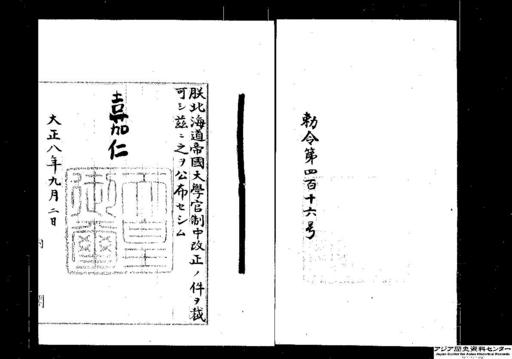 勅令第四百十六号
朕北海道帝國大學官制中改正ノ件ヲ裁
可シ玆ニ之ヲ公布セシム
嘉仁
天皇御璽
大正八年九月二日
アジア歴史資料センター
Japan Center for Asian Historical Records